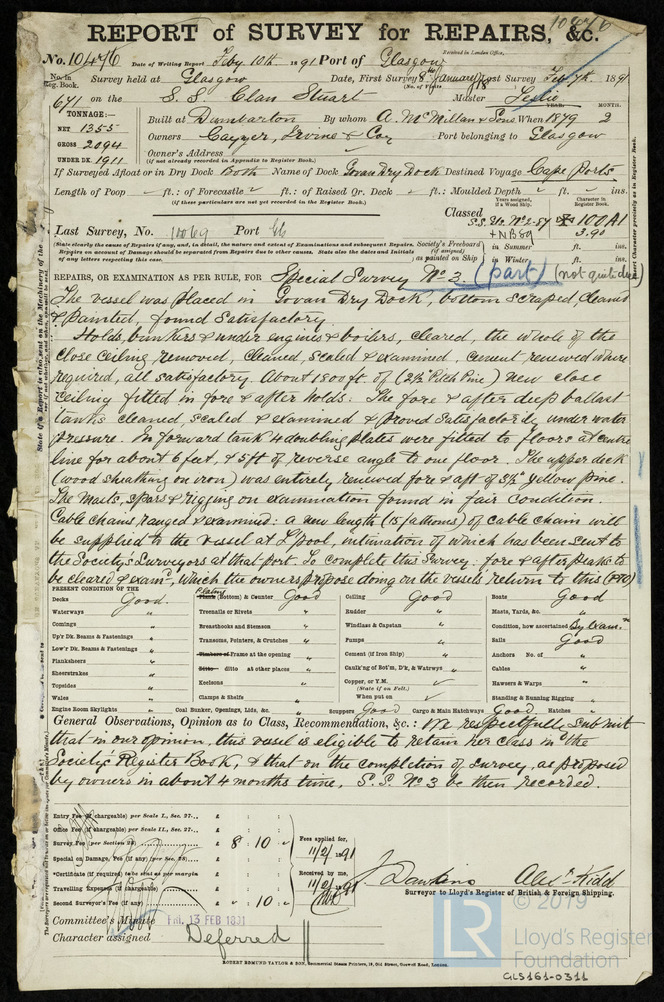 10476
REPORT of SURVEY for REPAIRS, &c.
Received in London Office,
No. 10476 Date of Writing Report Feby 10th 1891 Port of Glasgow
No. in Reg. Book. Survey held at Glasgow Date, First Survey 8th January Last Survey Feb 7th 1891
(No. of Visits 18)
671 on the S.S. Clan Stuart Master Leslie
TONNAGE:— YEAR. MONTH.
NET 1355 Built at Dumbarton By whom A. McMillan & Sons When 1879 2
GROSS 2094 Owners Cayzer, Irvine & Coy Port belonging to Glasgow
UNDER DK. 1911 Owner's Address
(if not already recorded in Appendix to Register Book.)
If Surveyed Afloat or in Dry Dock Both Name of Dock Govan Dry Dock Destined Voyage Cape Ports
Length of Poop ft.: of Forecastle ft.: of Raised Qr. Deck ft.: Moulded Depth ft. ins.
(if these particulars are not yet recorded in the Register Book.)
Years assigned, if a Wood Ship. Character in Register Book.
Classed S.S. No 2-87 100A1
+NB89 3.90
Last Survey, No. 10069 Port
(State clearly the cause of Repairs if any, and, in detail, the nature and extent of Examinations and subsequent Repairs.
Repairs on account of Damage should be separated from Repairs due to other causes. State also the dates and Initials
of any letters respecting this case.
Society's Freeboard (if assigned) as painted on Ship in Summer ft. ins.
in Winter ft. ins.
REPAIRS, OR EXAMINATION AS PER RULE, FOR Special Survey No 3 (part) (not quite due)
The vessel was placed in Govan Dry Dock, bottom scraped cleaned
& painted, found satisfactory.
Holds, bunkers & under engines & boilers, cleared, the whole of the
close ceiling removed, cleaned, scaled & examined, cement renewed where
required, all satisfactory. About 1800 ft. of (2½ Pitch Pine) new close
ceiling fitted in fore & after holds. The fore & after deep ballast
tanks cleaned, scaled & examined & proved satisfactorily under water
pressure. In forward tank 4 doubling plates were fitted to floors at centre
line for about 6 feet, & 5 ft of reverse angle to one floor. The upper deck
(wood sheathing on iron) was entirely renewed fore & aft of 3½" Yellow Pine.
The Masts, spars & rigging on examination found in fair condition.
Cable chains, ranged & examined: a new length (15 fathoms) of cable chain will
be supplied to the vessel at L'pool, intimation of which has been sent to
the Society's Surveyors at that port. To complete this Survey. fore & after peaks to
be cleared & examd, which the owners propose doing on the vessels return to this
PRESENT CONDITION OF THE
Decks Good. Plank (Bottom) & Counter Plating Good Ceiling Good Boats Good
Waterways " Treenails or Rivets " Rudder " Masts, Yards, &c. "
Comings " Breasthooks and Stemson Windlass & Capstan " Condition, how ascertained By Exam.
Up'r Dk. Beams & Fastenings " Transoms, Pointers, & Crutches " Pumps " Sails Good
Low'r Dk. Beams & Fastenings " Timbers of Frame at the opening Cement (if Iron Ship) " Anchors No. of "
Planksheers " Ditto ditto at other places " Caulk'ng of Bot'm, D'k, & Watrways " Cables "
Sheerstrakes " Keelsons " Copper, or Y.M. Hawsers & Warps "
Topsides " Clamps & Shelfs " (State if on Felt.) Standing & Running Rigging "
Wales " When put on
Engine Room Skylights " Coal Bunker, Openings, Lids, &c. " Scuppers Good Cargo & Main Hatchways Good Hatches "
General Observations, Opinion as to Class, Recommendation, &c.: We respectfully submit
that in our opinion, this vessel is eligible to retain her class in the
Society's Register Book, & that on the completion of survey, as proposed
by owners in about 4 months time, S.S. No 3 be then recorded.
Entry Fee (if chargeable) per Scale I., Sec. 27... £ : :
Office Fee (if chargeable) per Scale II., Sec. 27... £ : :
Survey Fee (per Section 28) £ 8 : 10 : Fees applied for, 11/2/91
Special on Damage, Fee (if any) (per Sec. 28) £ : :
*Certificate (if required) to be sent as per margin : : Received by me,
Travelling Expenses (if chargeable) £ : : 11/2/91
Second Surveyor's Fee (if any) £ " : 10 :
J. Dawkins Alexr Kidd
Surveyor to Lloyd's Register of British & Foreign Shipping.
Committee's Minute FRI. 13 FEB 1891
Character assigned Deferred
ROBERT EDMUND TAYLOR & SON, Commercial Steam Printers, 19, Old Street, Goswell Road, London.
LR
© 2019
Lloyd's Register
Foundation
GLS161-0311